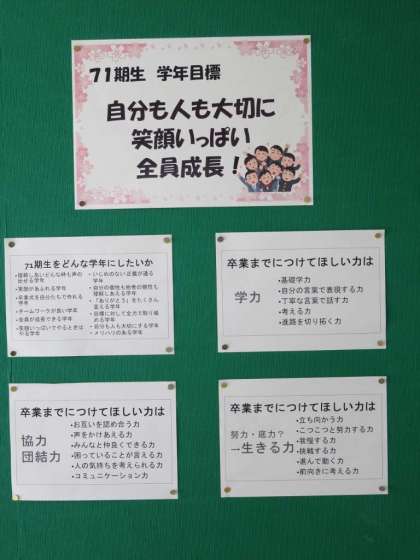 71期生 学年目標
自分も人も大切に
笑顔いっぱい
全員成長！
71期生をどんな学年にしたいか
・信頼しあいどんな時も声の
出せる学年
・笑顔があふれる学年
・卒業式を自分たちで作れる
学年
・チームワークが良い学年
・全員が成長できる学年
・笑顔いっぱいでやるときは
やる学年
・いじめのない正義が通る
学年
・自分の個性も他者の個性も
理解しあえる学年
・「ありがとう」をたくさん
言える学年
・目標に対して全力で取り組
める学年
・自分も人も大切にする学年
・メリハリのある学年
卒業までにつけてほしい力は
学力
・基礎学力
・自分の言葉で表現する力
・丁寧な言葉で話す力
・考える力
・進路を切り拓く力
卒業までにつけてほしい力は
協力
団結力
・お互いを認め合う力
・声をかけあえる力
・みんなと仲良くできる力
・困っていることが言える力
・人の気持ちを考えられる力
・コミュニケーション力
卒業までにつけてほしい力は
努力・底力？
→生きる力
・立ち向かう力
・こつこつと努力する力
・我慢する力
・挑戦する力
・進んで動く力
・前向きに考える力